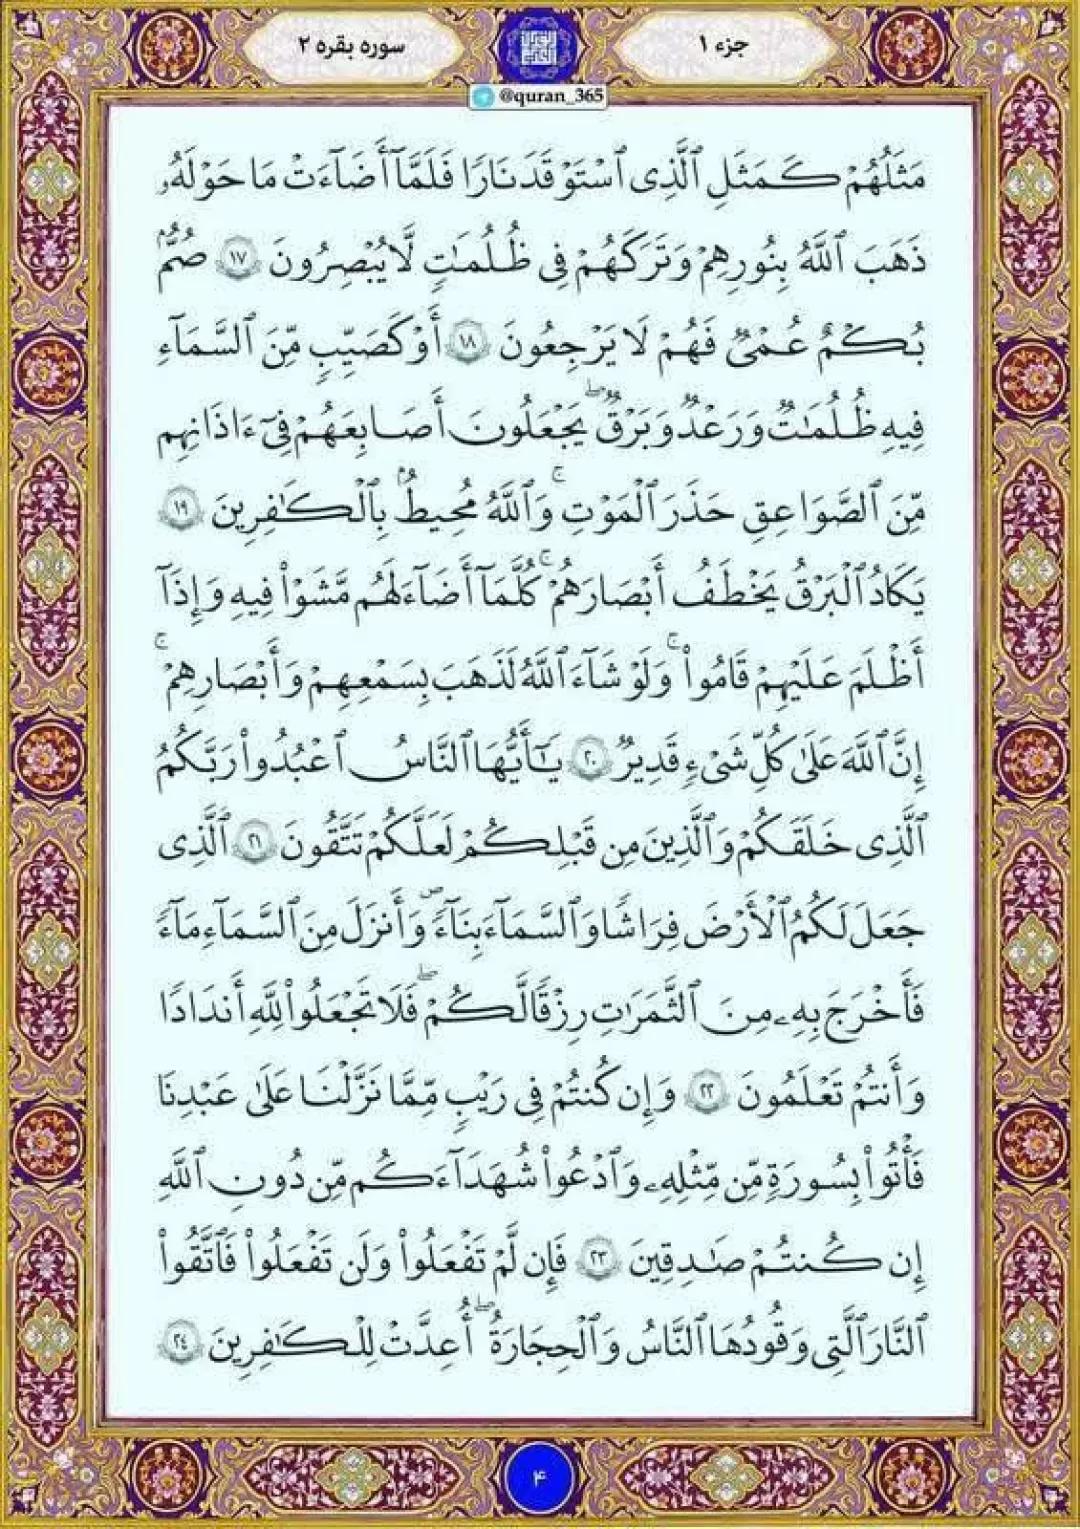 جزء ۱
سوره بقره ۲
@quran_365
مَثَلُهُمْ كَمَثَلِ ٱلَّذِى ٱسْتَوْقَدَ نَارًا فَلَمَّآ أَضَآءَتْ مَا حَوْلَهُۥ
ذَهَبَ ٱللَّهُ بِنُورِهِمْ وَتَرَكَهُمْ فِى ظُلُمَٰتٍ لَّا يُبْصِرُونَ ١٧ صُمٌّۢ
بُكْمٌ عُمْىٌ فَهُمْ لَا يَرْجِعُونَ ١٨ أَوْ كَصَيِّبٍ مِّنَ ٱلسَّمَآءِ
فِيهِ ظُلُمَٰتٌ وَرَعْدٌ وَبَرْقٌ ۖ يَجْعَلُونَ أَصَابِعَهُمْ فِىٓ ءَاذَانِهِم
مِّنَ ٱلصَّوَاعِقِ حَذَرَ ٱلْمَوْتِ ۚ وَٱللَّهُ مُحِيطٌۢ بِٱلْكَٰفِرِينَ ١٩
يَكَادُ ٱلْبَرْقُ يَخْطَفُ أَبْصَارَهُمْ ۚ كُلَّمَآ أَضَآءَ لَهُم مَّشَوْا۟ فِيهِ وَإِذَآ
أَظْلَمَ عَلَيْهِمْ قَامُوا۟ ۚ وَلَوْ شَآءَ ٱللَّهُ لَذَهَبَ بِسَمْعِهِمْ وَأَبْصَارِهِمْ ۚ
إِنَّ ٱللَّهَ عَلَىٰ كُلِّ شَىْءٍ قَدِيرٌ ٢٠ يَٰٓأَيُّهَا ٱلنَّاسُ ٱعْبُدُوا۟ رَبَّكُمُ
ٱلَّذِى خَلَقَكُمْ وَٱلَّذِينَ مِن قَبْلِكُمْ لَعَلَّكُمْ تَتَّقُونَ ٢١ ٱلَّذِى
جَعَلَ لَكُمُ ٱلْأَرْضَ فِرَاشًا وَٱلسَّمَآءَ بِنَآءً ۖ وَأَنزَلَ مِنَ ٱلسَّمَآءِ مَآءً
فَأَخْرَجَ بِهِۦ مِنَ ٱلثَّمَرَٰتِ رِزْقًا لَّكُمْ ۖ فَلَا تَجْعَلُوا۟ لِلَّهِ أَندَادًا
وَأَنتُمْ تَعْلَمُونَ ٢٢ وَإِن كُنتُمْ فِى رَيْبٍ مِّمَّا نَزَّلْنَا عَلَىٰ عَبْدِنَا
فَأْتُوا۟ بِسُورَةٍ مِّن مِّثْلِهِۦ وَٱدْعُوا۟ شُهَدَآءَكُم مِّن دُونِ ٱللَّهِ
إِن كُنتُمْ صَٰدِقِينَ ٢٣ فَإِن لَّمْ تَفْعَلُوا۟ وَلَن تَفْعَلُوا۟ فَٱتَّقُوا۟
ٱلنَّارَ ٱلَّتِى وَقُودُهَا ٱلنَّاسُ وَٱلْحِجَارَةُ ۖ أُعِدَّتْ لِلْكَٰفِرِينَ ٢٤
۴